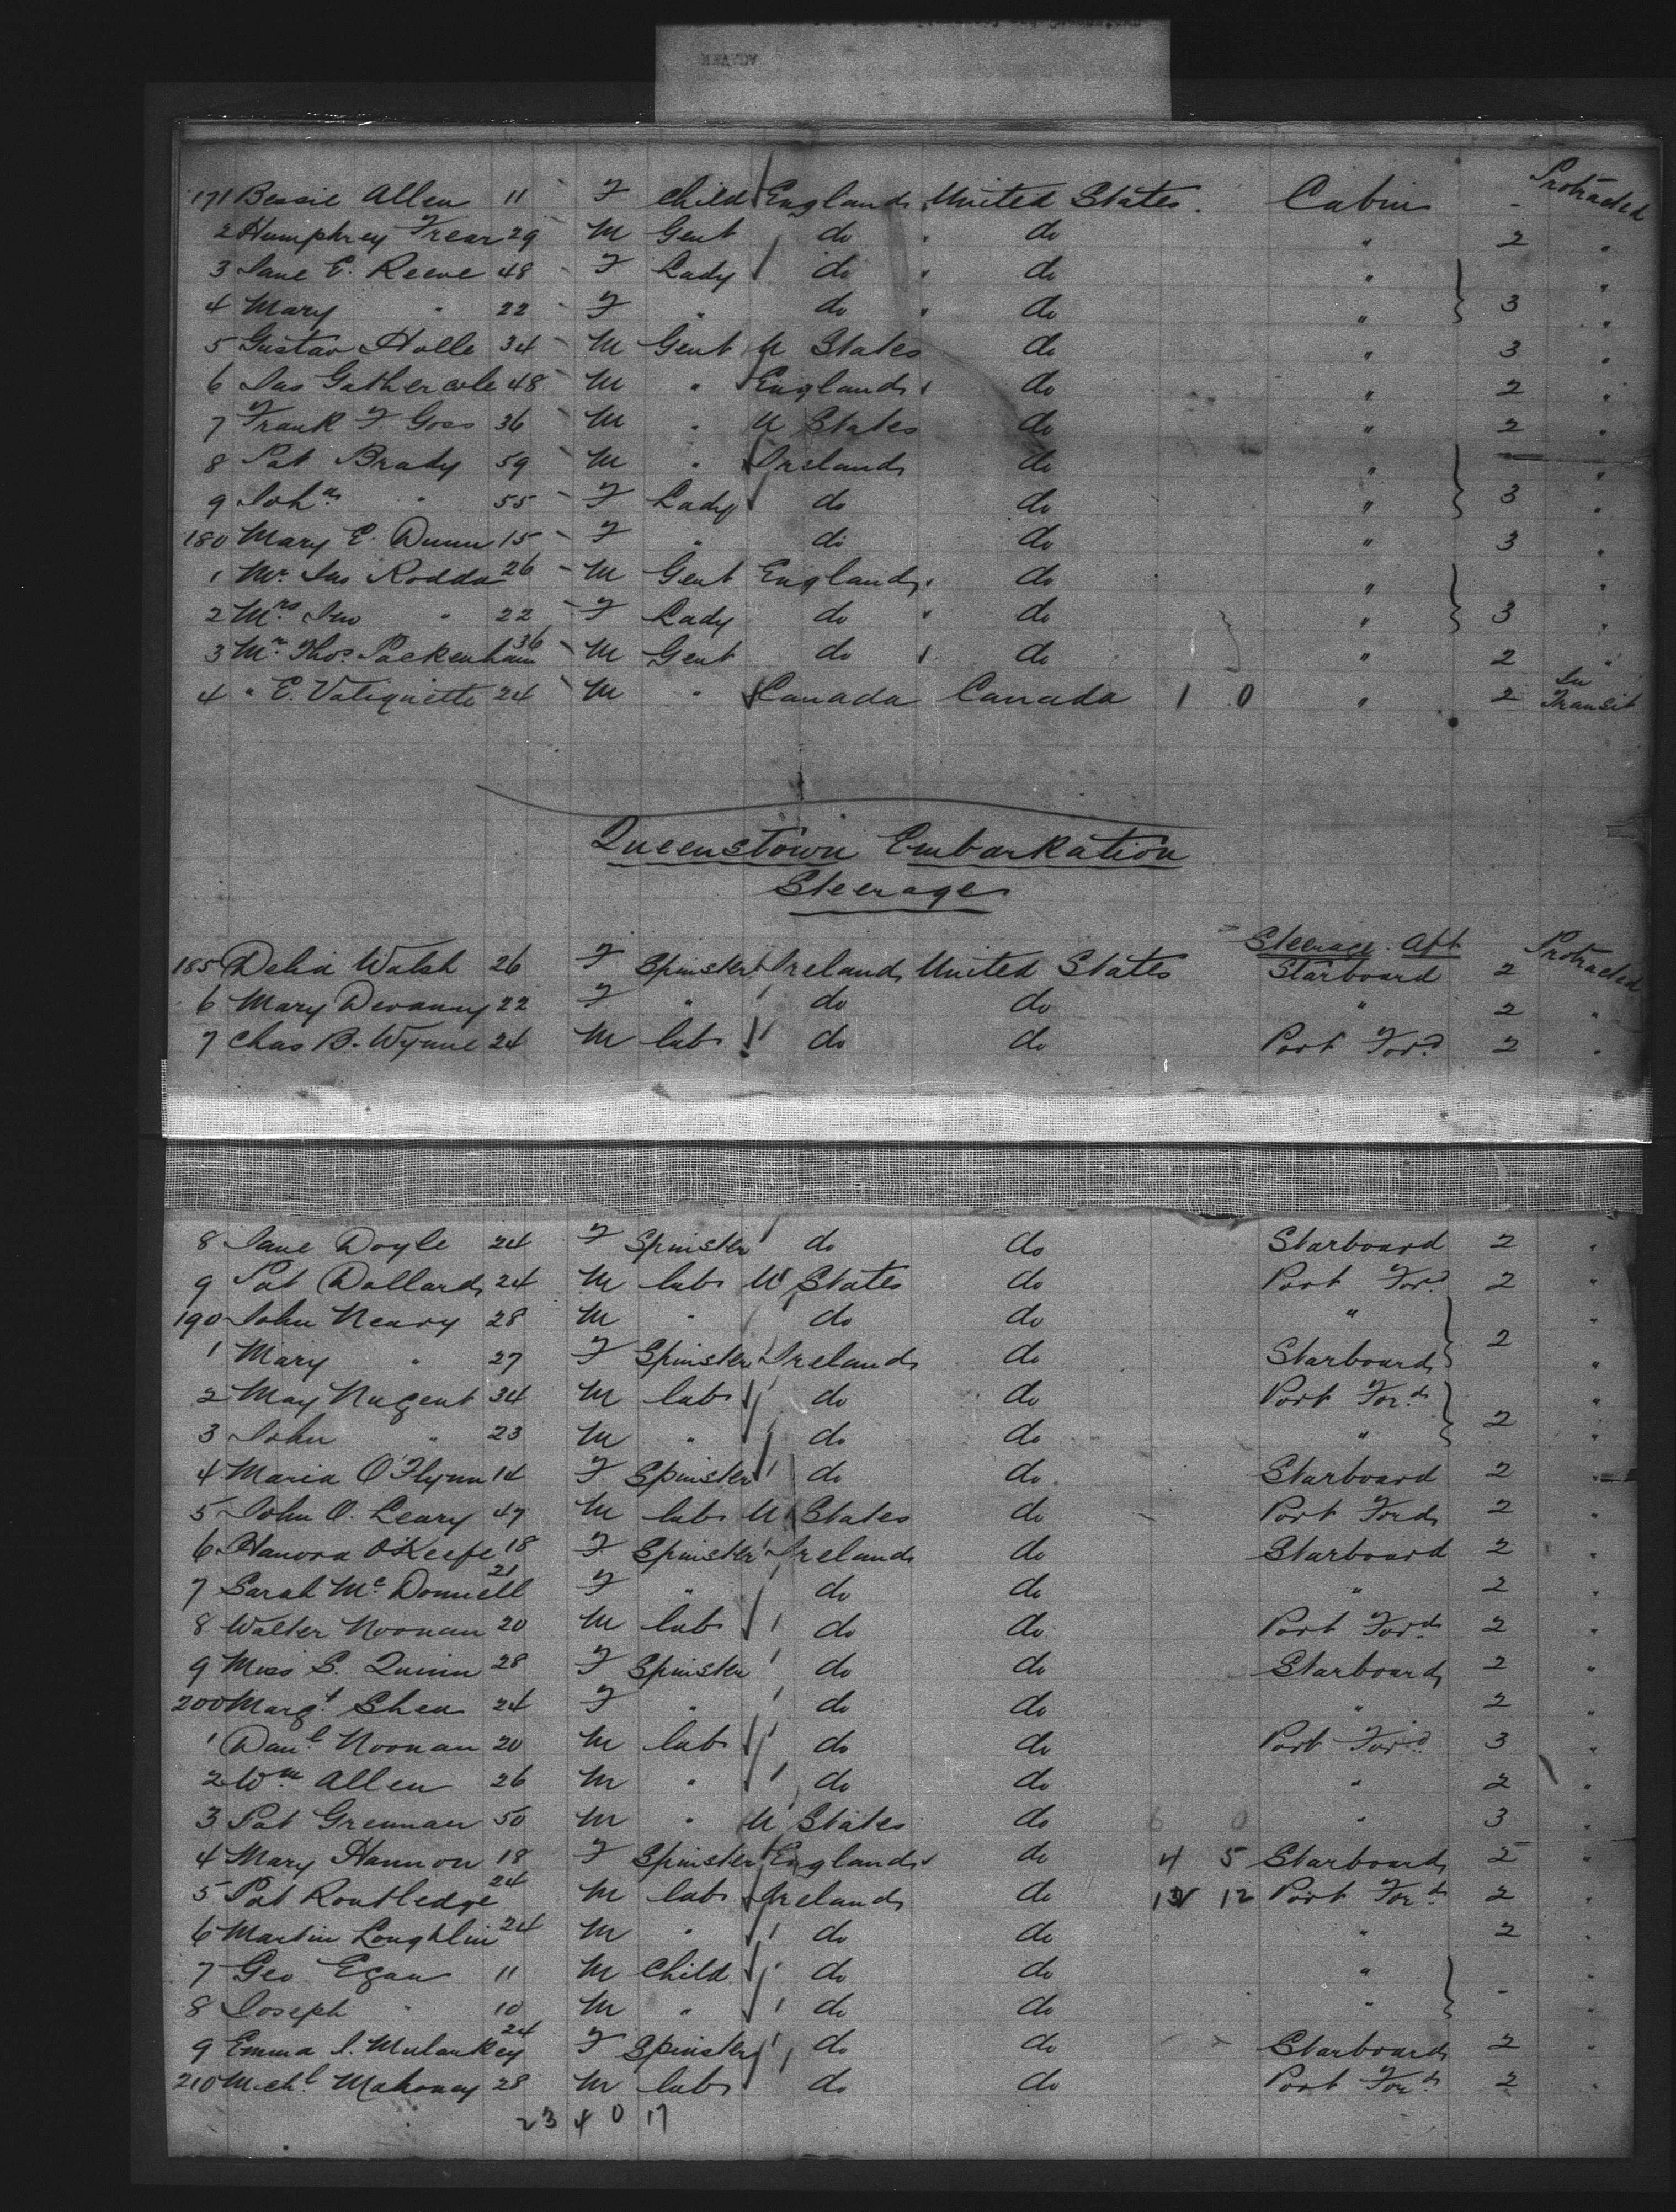 171 Bessie Allen 11 F Child England United States Cabin - Protracted
2 Humphrey Frear 29 M Gent do do " 2 "
3 Jane E. Reeve 48 F Lady do do " "
4 Mary " 22 F " do do " 3 "
5 Gustav Holle 34 M Gent U States do " 3 "
6 Jas Gathercole 48 M " England do " 2 "
7 Frank F. Goss 36 M " U States do " 2 "
8 Pat Brady 59 M " Ireland do " "
9 Joh " 55 F Lady do do " 3 "
180 Mary E. Dunn 15 F " do do " 3 "
1 Mr. Jas Rodda 26 M Gent England do " "
2 Mrs Jno " 22 F Lady do do " 3 "
3 Mr Thos. Packenham 36 M Gent do do " 2 "
4 " E. Valiquette 24 M " Canada Canada 1 0 " 2 In Transit
Queenstown Embarkation
Steerage
Steerage Aft
185 Delia Walsh 26 F Spinster Ireland United States Starboard 2 Protracted
6 Mary Devanny 22 F " do do " 2 "
7 Chas B. Wynne 24 M lab do do Port Ford 2 "
8 Jane Doyle 24 F Spinster do do Starboard 2 "
9 Pat Dollard 24 M lab U States do Port Ford 2 "
190 John Neary 28 M " do do " "
1 Mary " 27 F Spinster Ireland do Starboard 2 "
2 May Nugent 34 M lab do do Port Ford "
3 John " 23 M " do do " 2 "
4 Maria O'Flynn 14 F Spinster do do Starboard 2 "
5 John O. Leary 47 M lab U States do Port Ford 2 "
6 Hanora O'Keefe 18 F Spinster Ireland do Starboard 2 "
7 Sarah Mc Donnell 21 F " do do " 2 "
8 Walter Noonan 20 M lab do do Port Ford 2 "
9 Miss S. Quinn 28 F Spinster do do Starboard 2 "
200 Margt Shea 24 F " do do " 2 "
1 Danl Noonan 20 M lab do do Port Ford 3 "
2 Wm Allen 26 M " do do " 2 "
3 Pat Grennan 50 M " U States do 6 0 " 3 "
4 Mary Hannon 18 F Spinster England do 4 5 Starboard 2 "
5 Pat Routledge 24 M lab Ireland do 12 Port Ford 2 "
6 Martin Loughlin 24 M " do do " 2 "
7 Geo Egan 11 M Child do do " "
8 Joseph " 10 M " do do " - "
9 Emma J. Mularkey 24 F Spinster do do Starboard 2 "
210 Michl Mahoney 28 M lab do do Port Ford 2 "
23 4 0 17